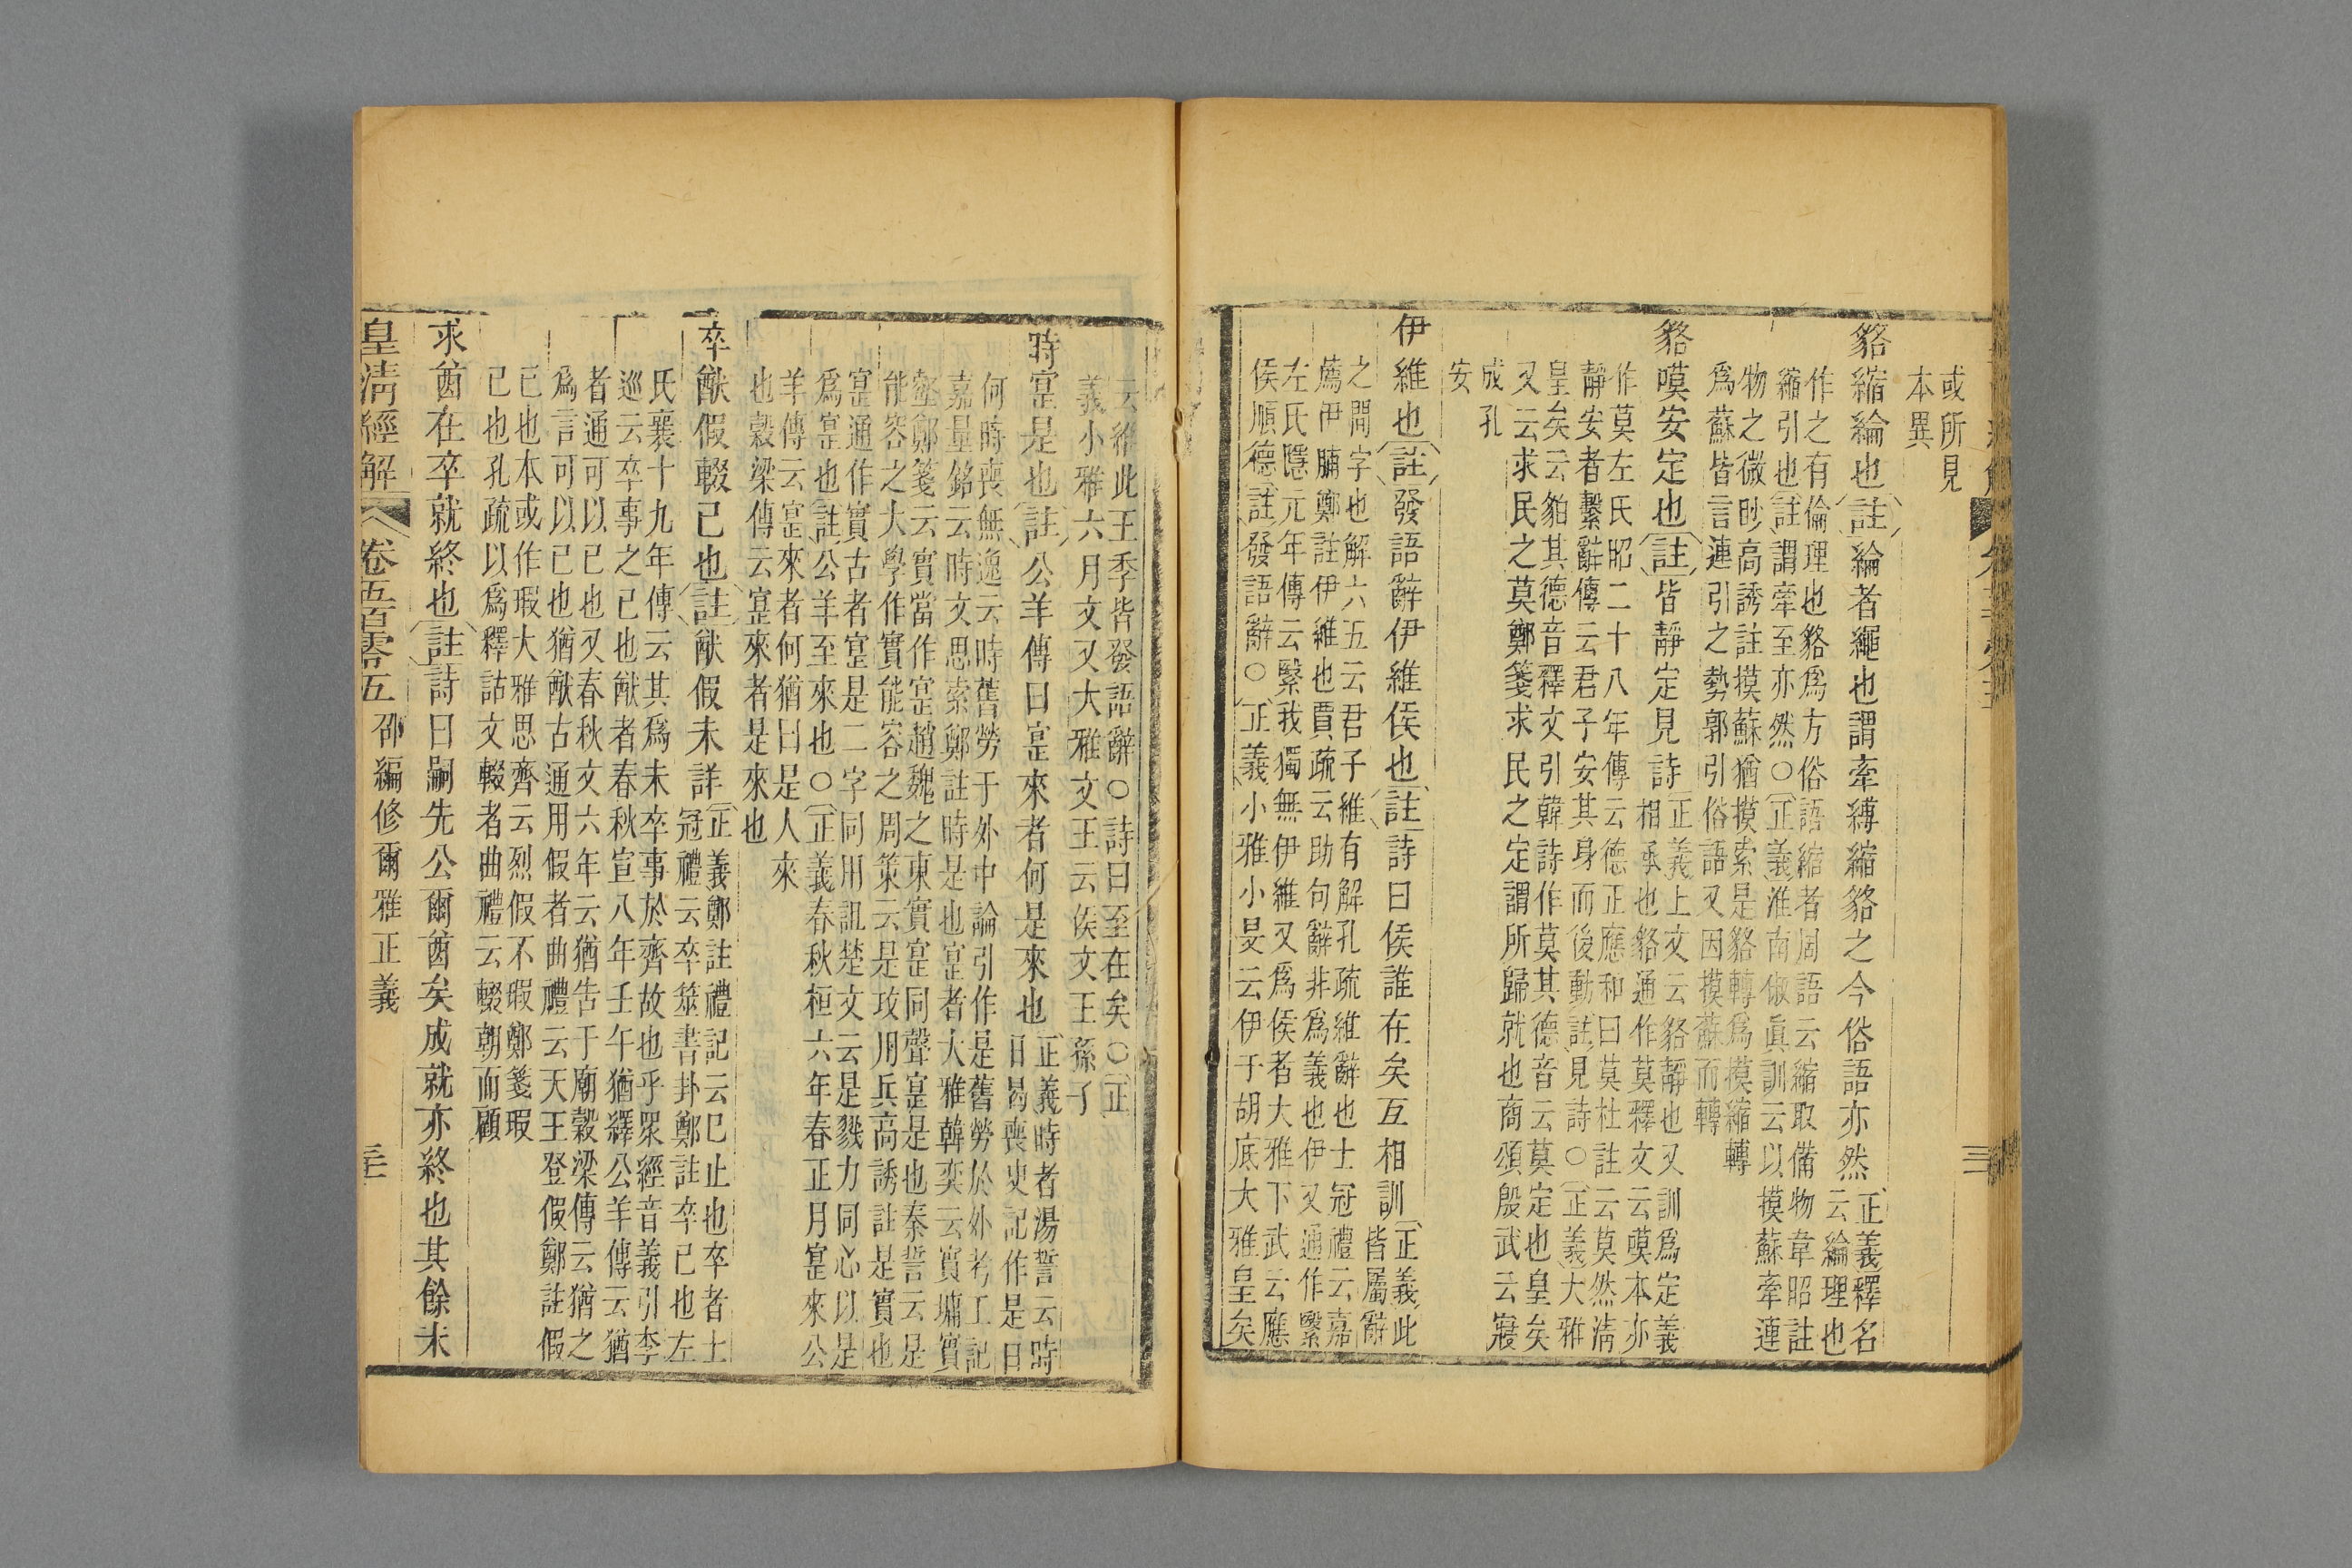 或所見
本異
貉縮綸也註綸者繩也謂牽縛縮貉之今俗語亦然正義釋名
云綸理也
作之有倫理也貉爲方俗語縮者周語云縮取備物韋昭註
縮引也註謂牽至亦然○正義淮南俶眞訓云以摸蘇牽連
物之微眇高誘註摸蘇猶摸索是貉轉爲摸縮轉
爲蘇皆言連引之勢郭引俗語又因摸蘇而轉
貉嗼安定也註皆靜定見詩正義上文云貉靜也又訓爲定義
相承也貉通作莫釋文云嗼本亦
作莫左氏昭二十八年傳云德正應和曰莫杜註云莫然淸
靜安者繫辭傳云君子安其身而後動註見詩○正義大雅
皇矣云貊其德音釋文引韓詩作莫其德音云莫定也皇矣
又云求民之莫鄭箋求民之定謂所歸就也商頌殷武云寢
成孔
安
伊維也註發語辭伊維侯也註詩曰侯誰在矣互相訓正義此
皆屬辭
之閒字也解六五云君子維有解孔疏維辭也士冠禮云嘉
薦伊脯鄭註伊維也賈疏云助句辭非爲義也伊又通作繄
左氏隱元年傳云繄我獨無伊維又爲侯者大雅下武云應
侯順德註發語辭○正義小雅小旻云伊于胡底大雅皇矣
云維此王季皆發語辭○詩曰至在矣○正
義小雅六月文又大雅文王云侯文王孫子
時寔是也註公羊傳曰寔來者何是來也正義時者湯誓云時
日曷喪史記作是日
何時喪無逸云時舊勞于外中論引作是舊勞於外考工記
嘉量銘云時文思索鄭註時是也寔者大雅韓奕云實墉實
壑鄭箋云實當作寔趙魏之東實寔同聲寔是也秦誓云是
能容之大學作實能容之周策云是攻用兵高誘註是實也
寔通作實古者寔是二字同用詛楚文云是戮力同心以是
爲寔也註公羊至來也○正義春秋桓六年春正月寔來公
羊傳云寔來者何猶曰是人來
也穀梁傳云寔來者是來也
卒猷假輟已也註猷假未詳正義鄭註禮記云已止也卒者士
冠禮云卒筮書卦鄭註卒已也左
氏襄十九年傳云其爲未卒事於齊故也乎眾經音義引李
巡云卒事之已也猷者春秋宣八年壬午猶繹公羊傳云猶
者通可以已也又春秋文六年云猶告于廟穀梁傳云猶之
爲言可以已也猶猷古通用假者曲禮云天王登假鄭註假
已也本或作瑕大雅思齊云烈假不瑕鄭箋瑕
已也孔疏以爲釋詁文輟者曲禮云輟朝而顧
求酋在卒就終也註詩曰嗣先公爾酋矣成就亦終也其餘未
皇淸經解 卷五百零五 邵編修爾雅正義